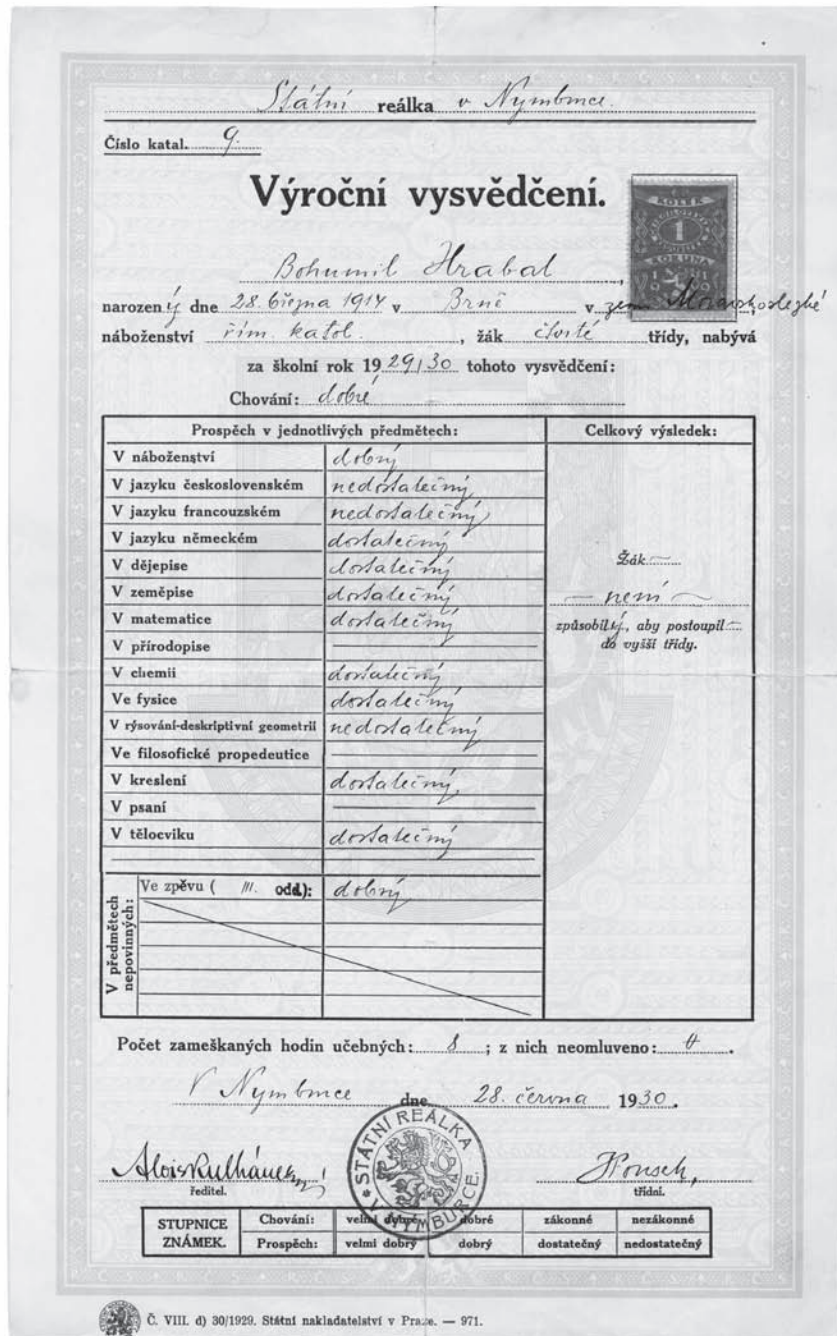 Státní reálka v Nymburce.
Číslo katal. 9.
Výroční vysvědčení.
KOLEK
1
KORUNA
1919
Bohumil Hrabal,
narozený dne 28. března 1914 v Brně v zemi Moravskoslezské
náboženství řím. katol., žák čtvrté třídy, nabývá
za školní rok 1929/30 tohoto vysvědčení:
Chování: dobré
Prospěch v jednotlivých předmětech: Celkový výsledek:
V náboženství dobrý
V jazyku československém nedostatečný
V jazyku francouzském nedostatečný
V jazyku německém dostatečný
V dějepise dostatečný
V zeměpise dostatečný
V matematice dostatečný
V přírodopise
V chemii dostatečný
Ve fysice dostatečný
V rýsování-deskriptivní geometrii nedostatečný
Ve filosofické propedeutice
V kreslení dostatečný
V psaní
V tělocviku dostatečný
Žák
není
způsobilý, aby postoupil
do vyšší třídy.
V předmětech nepovinných:
Ve zpěvu ( III. odd.): dobrý
Počet zameškaných hodin učebných: 8 ; z nich neomluveno:
V Nymburce dne 28. června 1930.
STÁTNÍ REÁLKA V NYMBURCE.
Alois Kulhánek
ředitel.
třídní.
STUPNICE ZNÁMEK.
Chování: velmi dobré dobré zákonné nezákonné
Prospěch: velmi dobrý dobrý dostatečný nedostatečný
Č. VIII. d) 30/1929. Státní nakladatelství v Praze. — 971.